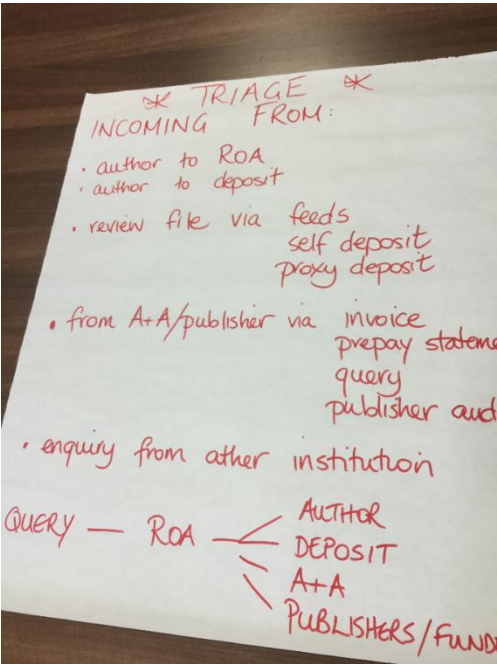 * TRIAGE *
INCOMING FROM:
· author to ROA
· author to deposit
· review file via feeds
self deposit
proxy deposit
· from A+A/publisher via invoice
prepay stateme
query
publisher aud
· enquiry from other institution
QUERY — ROA — AUTHOR
DEPOSIT
A+A
PUBLISHERS/FUND